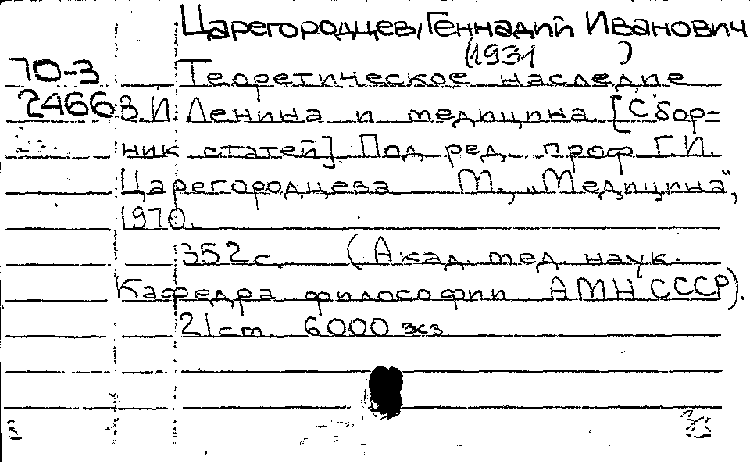 Царегородцев, Геннадий Иванович
(1931 )
70-3 Теоретическое наследие
2466 В.И. Ленина и медицина [Сбор-
ник статей] Под ред. проф Г.И.
Царегородцева М., „Медицина",
1970.
352 с. (Акад. мед. наук.
Кафедра философии АМН СССР).
21 cm. 6000 экз